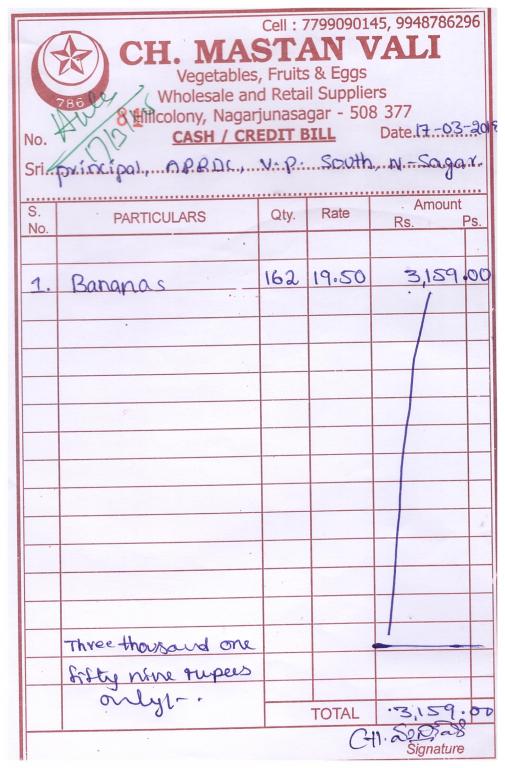 Cell : 7799090145, 9948786296
CH. MASTAN VALI
786
Vegetables, Fruits & Eggs
Wholesale and Retail Suppliers
Hillcolony, Nagarjunasagar - 508 377
No.
CASH / CREDIT BILL
Date. 17-03-2018
Sri. principal, APRDC, V.P. South, N-Sagar.
S. No. PARTICULARS Qty. Rate Amount Rs. Ps.
1. Bananas 162 19.50 3,159.00
Three thousand one
fifty nine rupees
only/-.
TOTAL 3,159.00
CH.
Signature